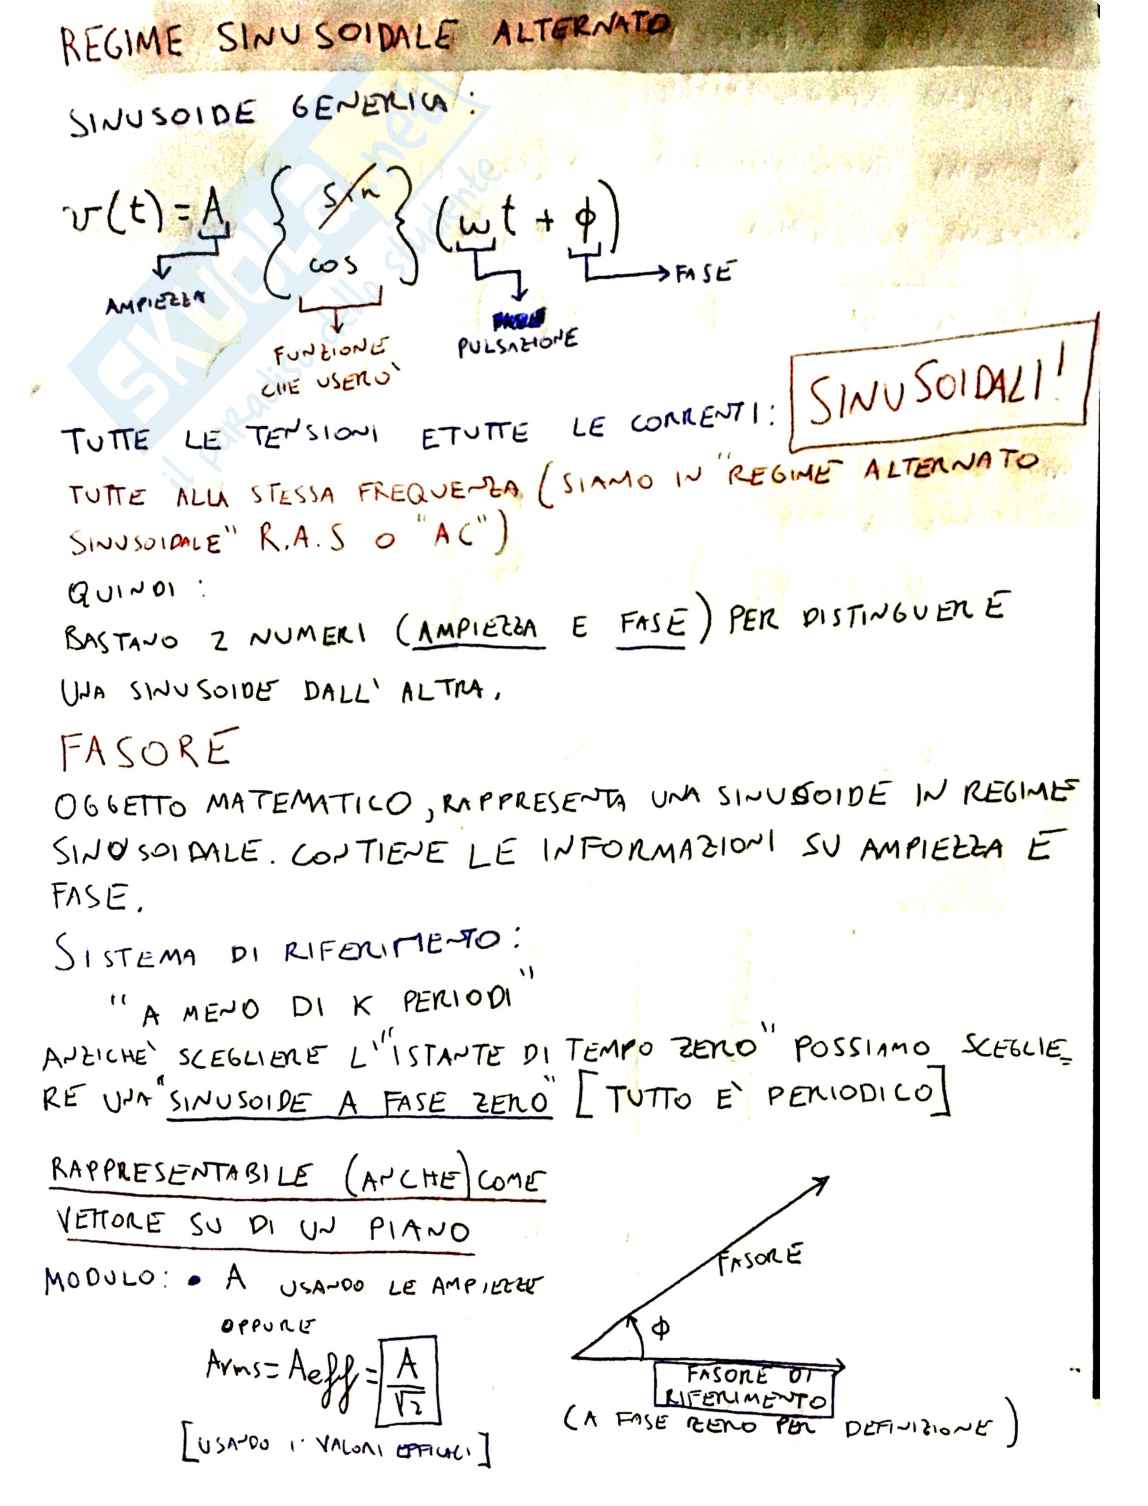 REGIME SINUSOIDALE ALTERNATO
SINUSOIDE GENERICA:
v(t) = A { sin cos } (ωt + ϕ)
AMPIEZZA
FUNZIONE
CHE USERO'
PULSAZIONE
FASE
TUTTE LE TENSIONI E TUTTE LE CORRENTI: SINUSOIDALI!
TUTTE ALLA STESSA FREQUENZA (SIAMO IN "REGIME ALTERNATO
SINUSOIDALE" R.A.S O "AC")
QUINDI:
BASTANO 2 NUMERI (AMPIEZZA E FASE) PER DISTINGUERE
UNA SINUSOIDE DALL'ALTRA.
FASORE
OGGETTO MATEMATICO, RAPPRESENTA UNA SINUSOIDE IN REGIME
SINUSOIDALE. CONTIENE LE INFORMAZIONI SU AMPIEZZA E
FASE.
SISTEMA DI RIFERIMENTO:
"A MENO DI K PERIODI"
ANZICHE' SCEGLIERE L'"ISTANTE DI TEMPO ZERO" POSSIAMO SCEGLIE=
RE UNA "SINUSOIDE A FASE ZERO" [TUTTO E' PERIODICO]
RAPPRESENTABILE (ANCHE) COME
VETTORE SU DI UN PIANO
MODULO: • A USANDO LE AMPIEZZE
OPPURE
Arms = Aeff = A/√2
[USANDO I VALORI EFFICACI]
FASORE
ϕ
FASORE DI
RIFERIMENTO
(A FASE ZERO PER DEFINIZIONE)
SKUOLA.net
il paradiso dello studente